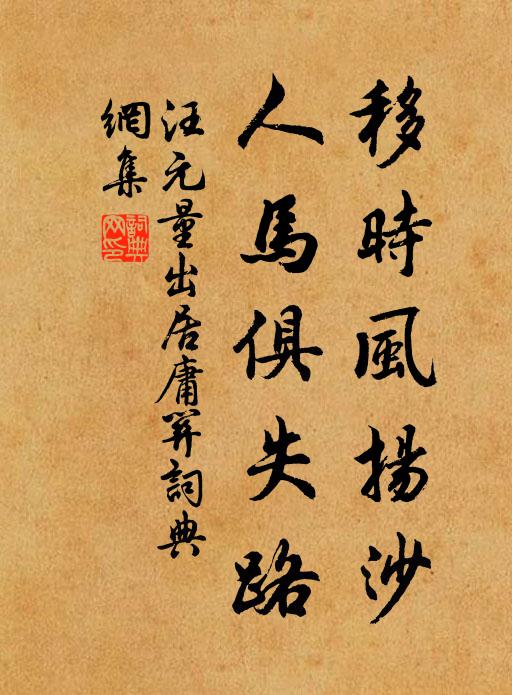 移時風揚沙
人馬俱失路
汪元量出居庸關詞典
網集
詞典
网印